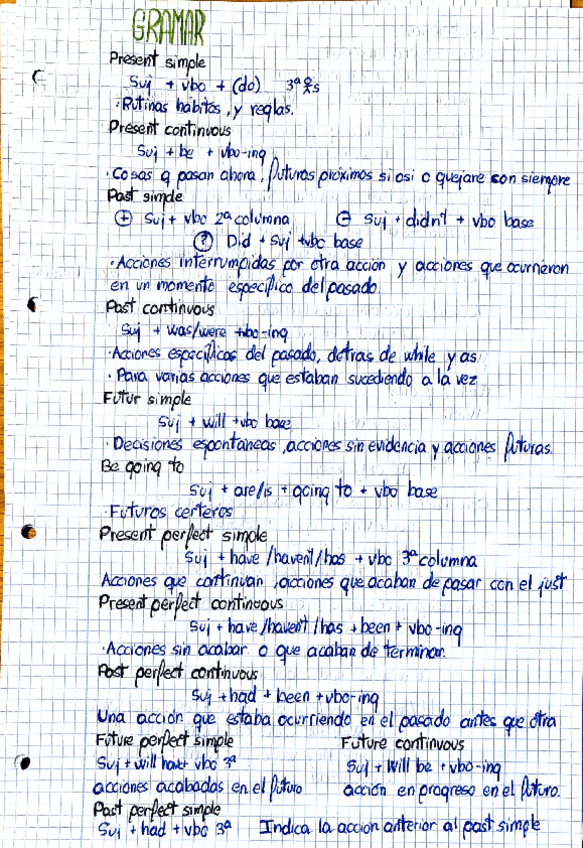 GRAMAR
Present simple
Suj + vbo + (do) 3ª s
· Rutinas habitos, y reglas.
Present continuous
Suj + be + vbo-ing
· Cosas q pasan ahora, futuros proximos si osi o quejare con siempre
Past simple
+ Suj + vbo 2ª columna - Suj + didn't + vbo base
? Did + Suj + vbo base
· Acciones interrumpidas por otra acción y acciones que ocurrieron
en un momento especifico del pasado.
Past continuous
Suj + was/were + vbo-ing
· Acciones especificas del pasado, detras de while y as
· Para varias acciones que estaban sucediendo a la vez
Futur simple
Suj + will + vbo base
· Decisiones espontaneas, acciones sin evidencia y acciones futuras.
Be going to
Suj + are/is + going to + vbo base
· Futuros certeros
Present perfect simple
Suj + have /haven't/has + vbo 3ª columna
Acciones que continuan, acciones que acaban de pasar con el just
Present perfect continuous
Suj + have /haven't /has + been + vbo-ing
· Acciones sin acabar o que acaban de terminar.
Past perfect continuous
Suj + had + been + vbo-ing
Una acción que estaba ocurriendo en el pasado antes que otra
Future perfect simple Future continuous
Suj + will have + vbo 3ª Suj + Will be + vbo-ing
acciones acabadas en el futuro acción en progreso en el futuro.
Past perfect simple
Suj + had + vbo 3ª Indica la acción anterior al past simple